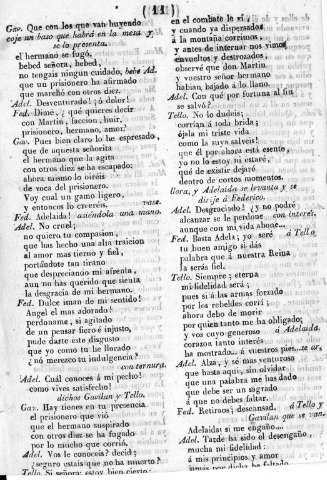 ( 11 )
Gav. Que con los que van huyendo
coje un vaso que habrá en la mesa y
se lo presenta.
el hermano se fugó,
bebed señora, bebed,
no tengais ningun cuidado, bebe Ad.
que un prisionero ha afirmado
que marchó con otros diez.
Adel. Desventurado! ¡ó dolor!
Fed. Dime, ¿qué quieres decir
con Martin, faccion, huir,
prisionero, hermano, amor?
Gav. Pues bien claro lo he espresado,
que de aquesta señorita
el hermano que la agita
con otros diez se ha escapado:
ahora mismo lo oireis
de voca del prisionero.
Voy cual un gamo ligero,
y entonces lo creereis. vase.
Fed. Adelaida! asiéndola una mano.
Adel. No cruel;
no quiera tu compasion,
que has hecho una alta traicion
al amor mas tierno y fiel,
portándote tan tirano
que despreciando mi afrenta,
aun no has querido que sienta
la desgracia de mi hermano.
Fed. Dulce iman de mi sentido!
Angel el mas adorado!
perdoname, si agitado
de un pensar fiero é injusto,
pude darte este disgusto
que yo como tu he llorado
¿nó merezco tu indulgencia?
con ternura.
Adel. Cuál conoces á mi pecho!
como vives satisfecho!
dichos Gavilan y Tello.
Gav. Hay tienes en tu presencia
el prisionero que vió
que el hermano suspirado
con otros diez se ha fugado
por lo mucho que corrió,
Adel. Vos le conoceis? decid;
¿seguro estais que no ha muerto?
Tello. Si señora; estoy bien cierto;
en el combate le vi,
y cuando ya dispersados
á la montaña corrimos,
y antes de internar nos vimos
envueltos y destrozados,
observé que don Martin
y vuestro señor hermano
habian, bajado á lo llano.
Adel. Con qué por fortuna al fin
se salvó?
Tello. No lo dudeis;
corrian á toda brida;
ójala mi triste vida
como la suya salveis!
que él por ahora está esento,
yo no lo estoy ni estaré,
qué de existir dejaré
dentro de cortos momentos.
llora, y Adelaida se levanta y se
dirije á Federico.
Adel. Desgraciado! ¿y no podré
alcanzar se le perdone con interés.
aunque con mi vida abone...
Fed. Basta Adela; yo seré á Tello
tu buen amigo si dás
palabra que á nuestra Reina
la serás fiel.
Tello. Siempre; eterpa
mi fidelidad será;
pues si á las armas forzado
por los rebeldes corrí;
ahora debo de morir
por quien tanto me ha obligado;
y vos cuyo generoso á Adelaida.
corazon tanto interés
ha mostrado...á vuestros pies..
Adel. Alza, y sé mas venturoso
que hasta aqui, sin olvidar
que una palabra me has dado
que debe ser un sagrado
á que no debes faltar.
Fed. Retiraos; descansad. á Tello y
Gavilan que se van.
Adelaida! si me engaño....
Adel. Tarde ha sido el desengaño,
mucha mi fidelidad:
á mis principios y amor